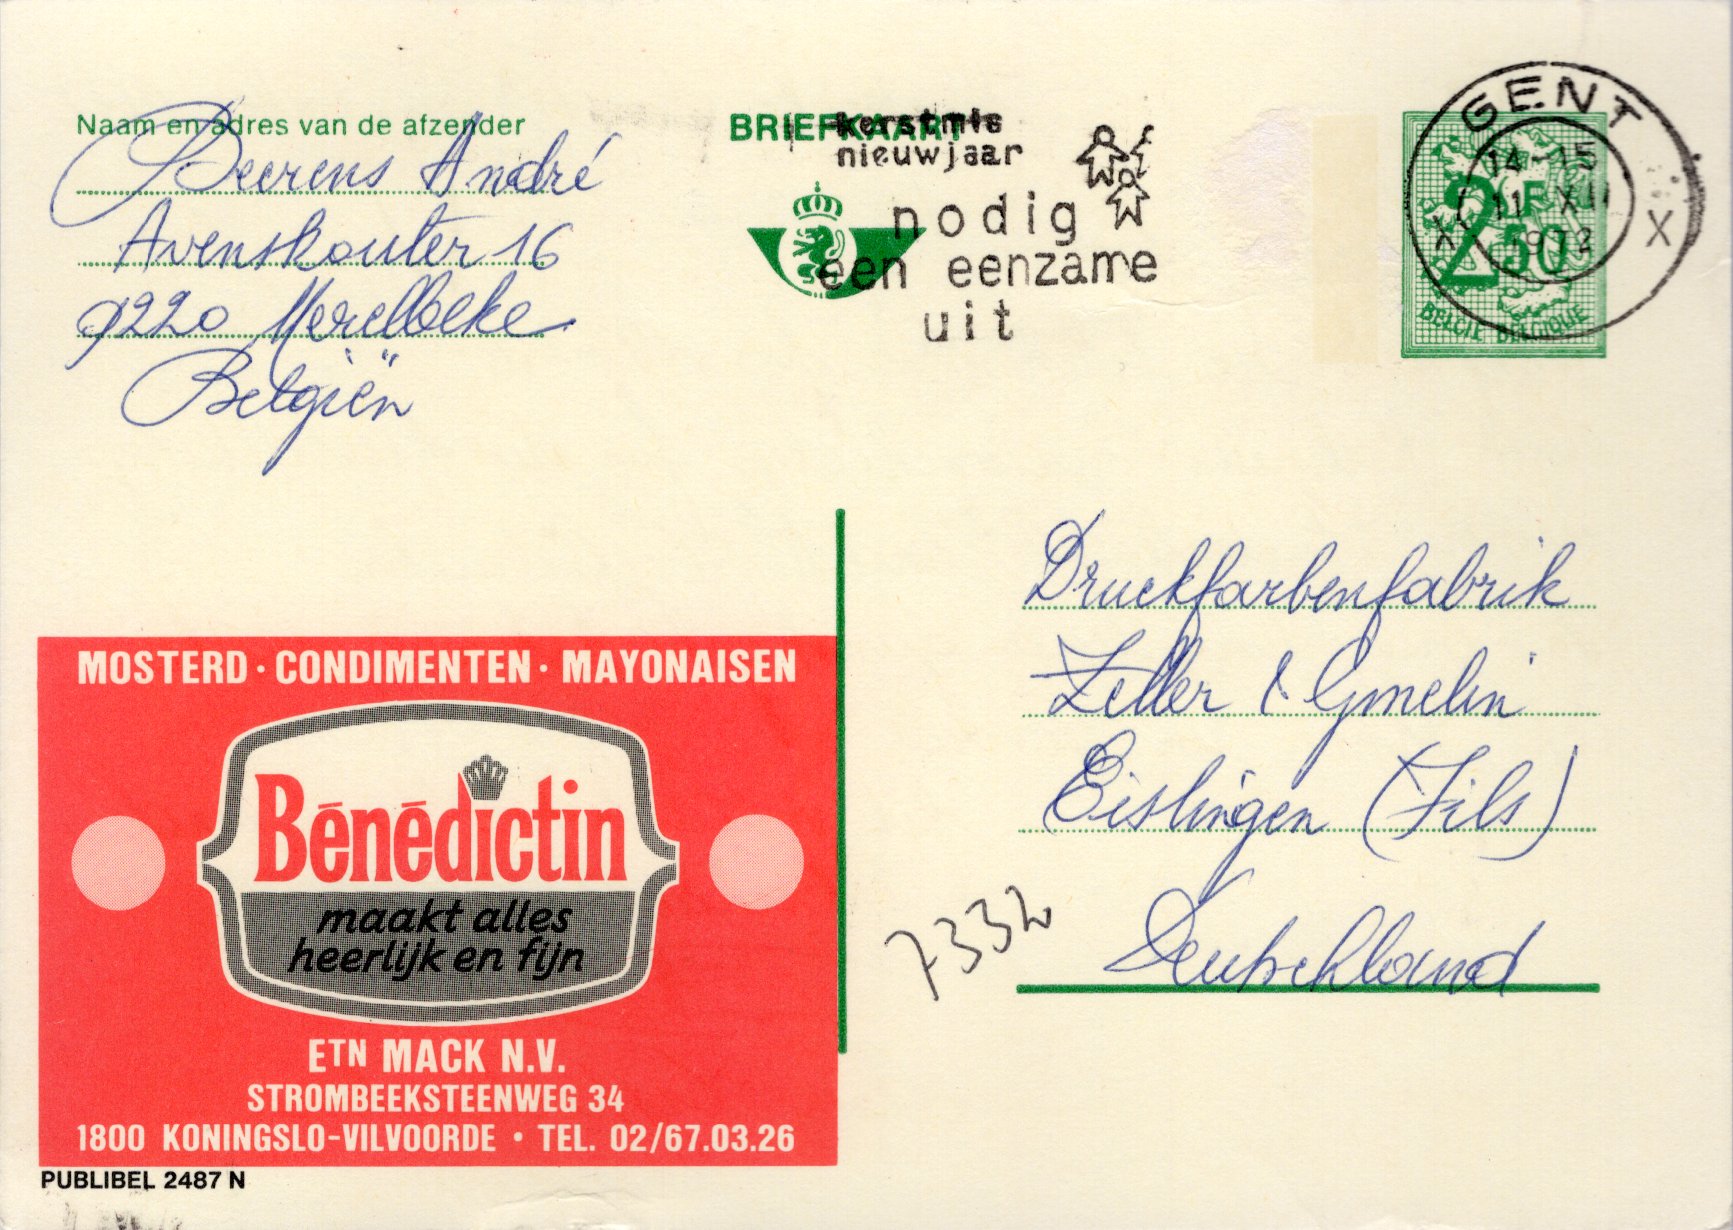 Naam en adres van de afzender
Beerens André
Avenskouter 16
9220 Merelbeke
Belgiën
BRIEFKAART
kerstmis
nieuwjaar
nodig
een eenzame
uit
GENT
14-15
11 XII
1972
X X
2F
50
BELGIE BELGIQUE
Druckfarbenfabrik
Zeller & Gmelin
Eislingen (Fils)
Deutschland
7332
MOSTERD · CONDIMENTEN · MAYONAISEN
Bénédictin
maakt alles
heerlijk en fijn
ETN MACK N.V.
STROMBEEKSTEENWEG 34
1800 KONINGSLO-VILVOORDE • TEL. 02/67.03.26
PUBLIBEL 2487 N